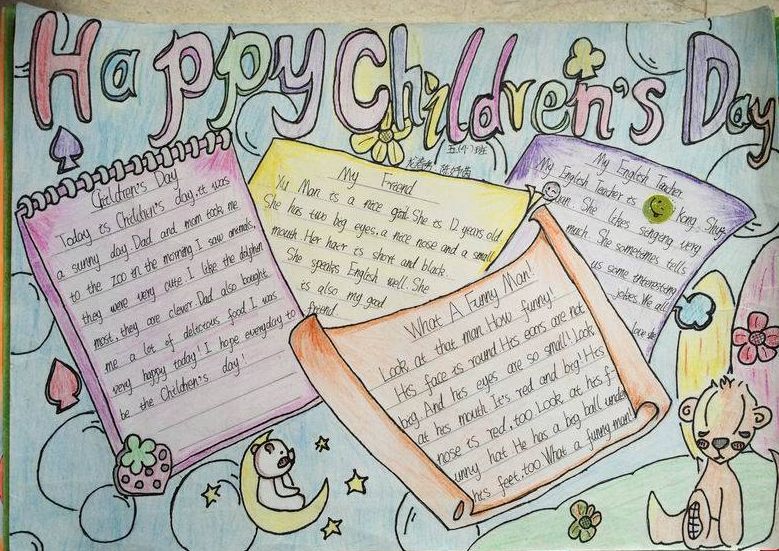 Happy Children's Day
五(4)班
Children's Day
Today is Children's day, it was
a sunny day. Dad and mom took me
to the zoo in the morning. I saw animals,
they were very cute. I like the dolphin
most, they are clever. Dad also bought
me a lot of delicious food. I was
very happy today! I hope everyday to
be the Children's day!
My Friend
Yu Man is a nice girl. She is 12 years old
She has two big eyes, a nice nose and a small
mouth. Her haer is short and black.
She speaks English well. She
is also my good
friend.
My English Teacher
My English Teacher is kong. Shuy
Jun. She likes singeing very
much. She sometimes tells
us some interessting
jobes. We all
love she
What A Funny Man!
Look at that man. How funny!
His face is round. His eans are not
big. And his eyes are so small! Look
at his mouth. It's red and big! His
nose is red, too. Look at his f-
unny hat. He has a big ball under
his feet, too. What a funny man!